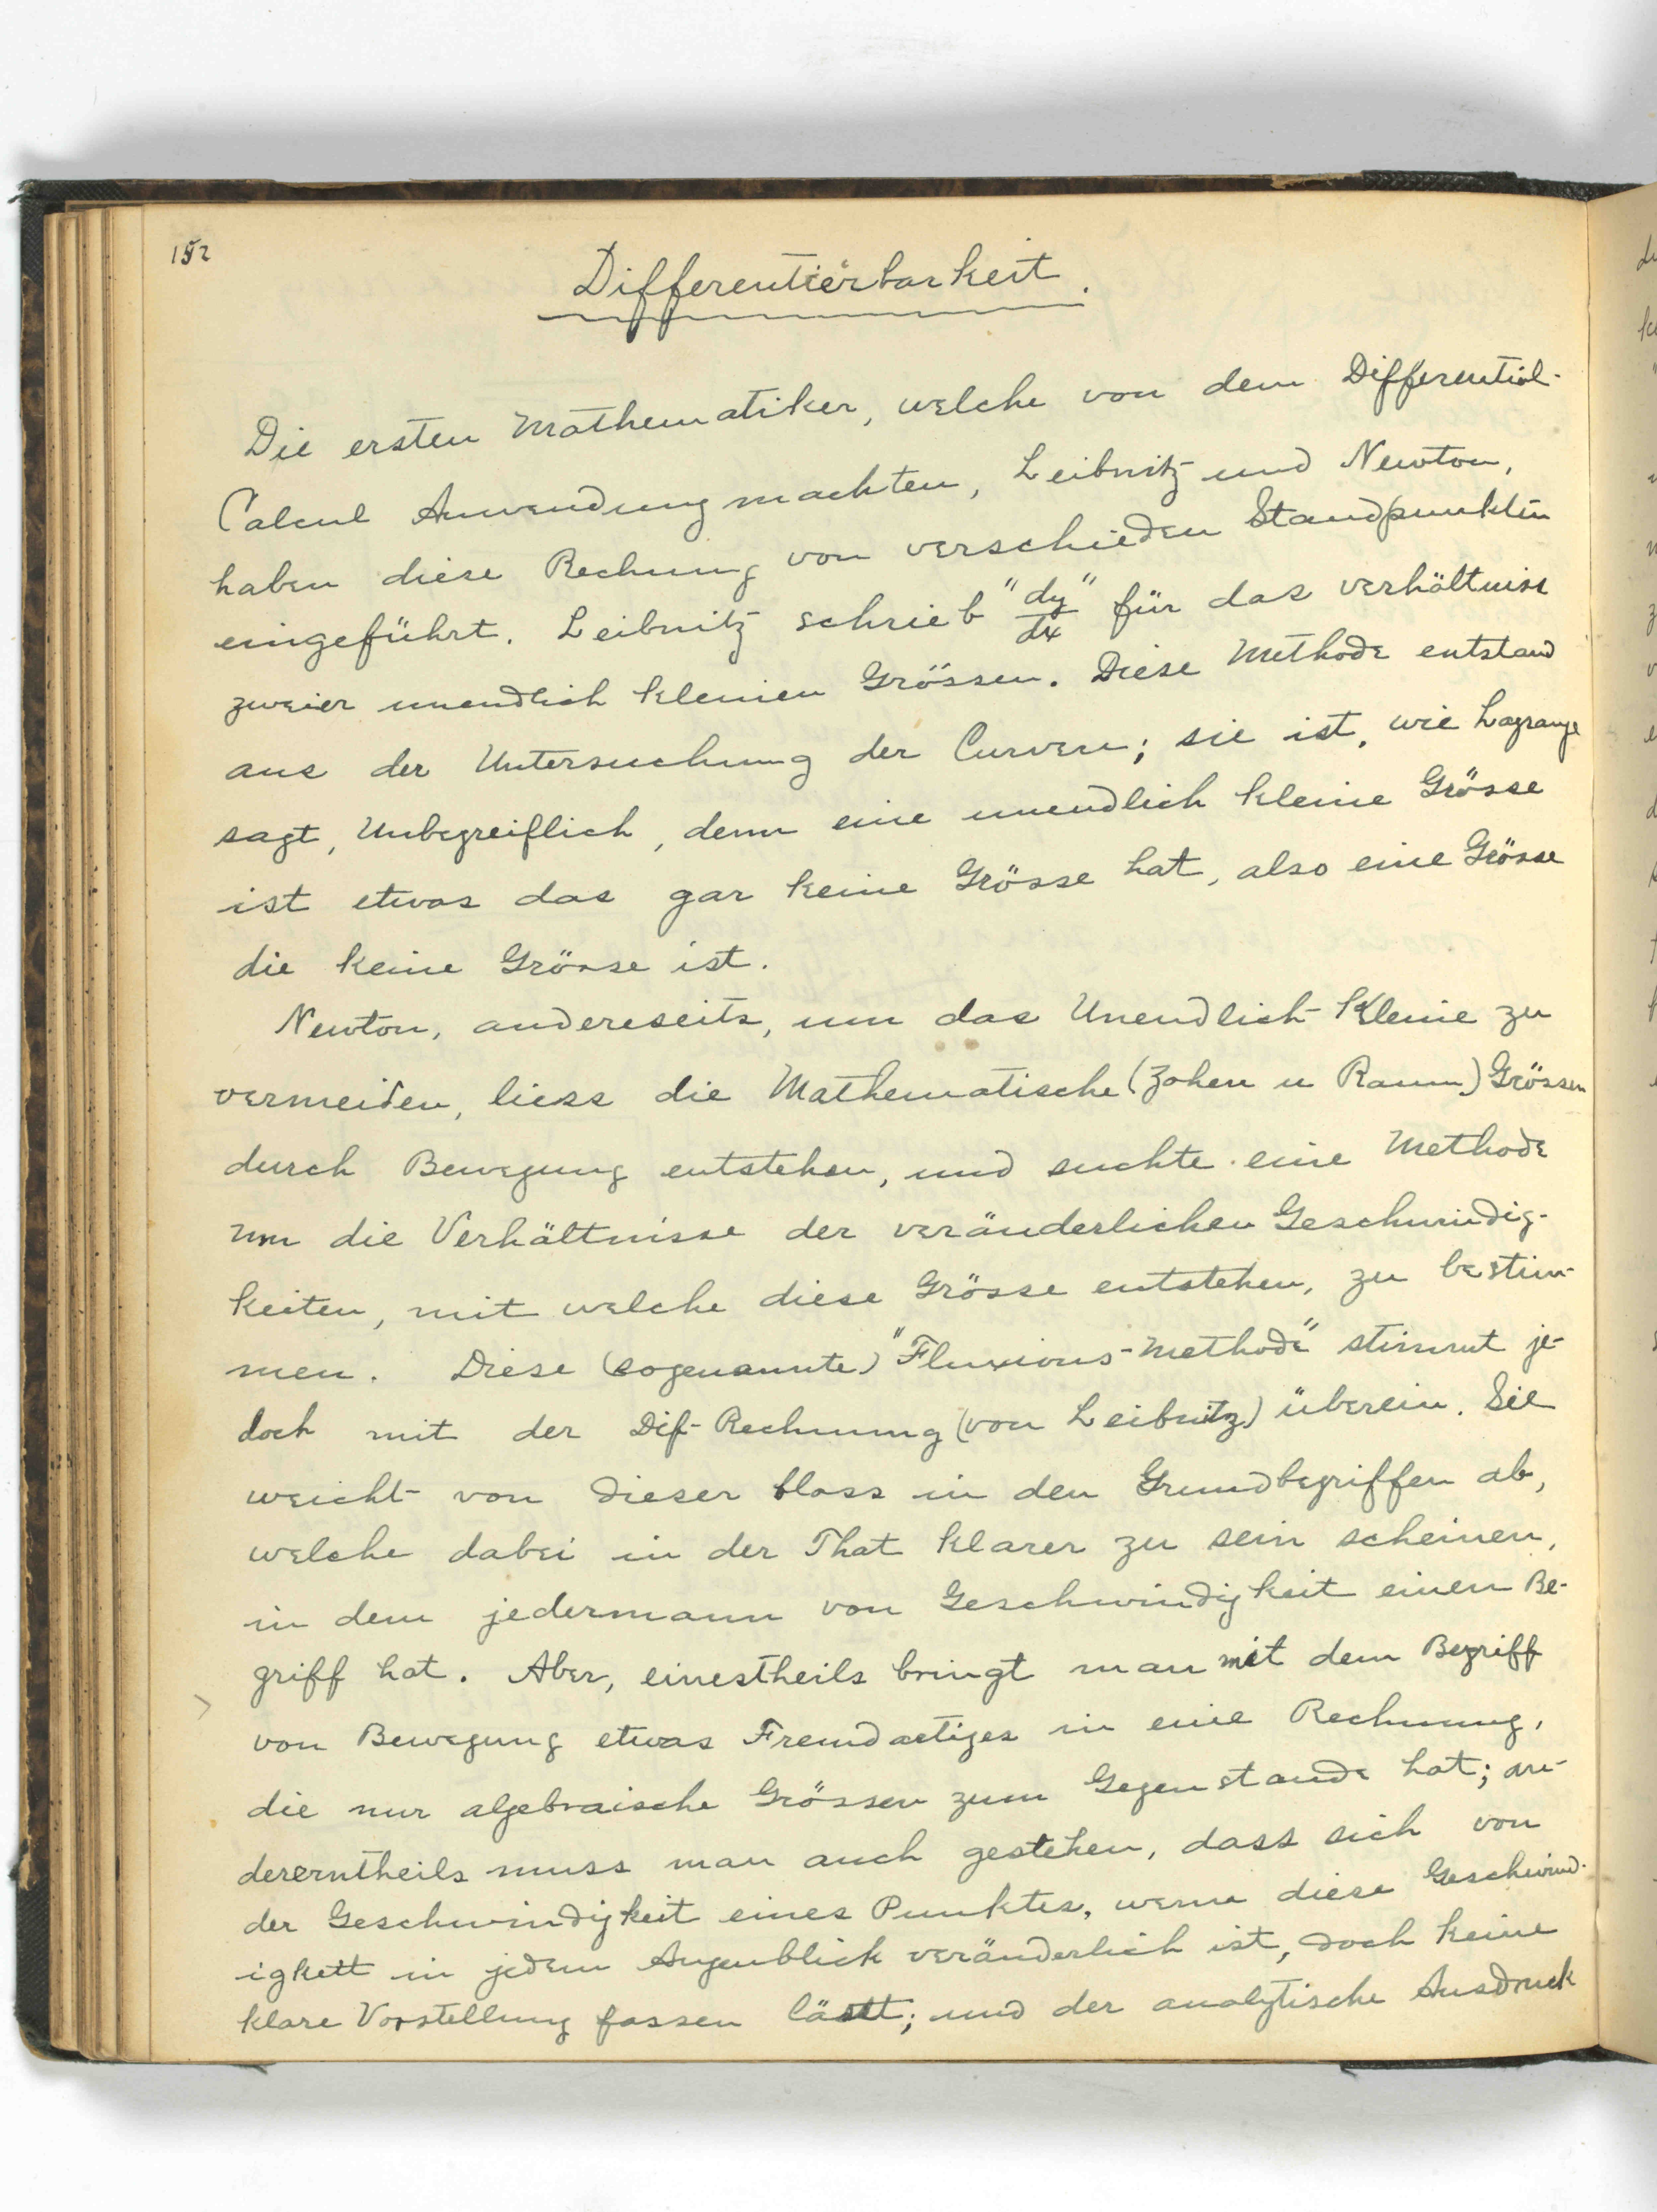 152
Differentierbarkeit.
Die ersten Mathematiker, welche von dem Differential-
Calcul Anwendung machten, Leibnitz und Newton,
haben diese Rechnung von verschieden Standpunkten
eingeführt. Leibnitz schrieb "dy/dx" für das verhältniss
zweier unendlich kleinen Grössen. Diese Methode entstand
aus der Untersuchung der Curven; sie ist, wie Lagrange
sagt, Unbegreiflich, denn eine unendlich kleine Grösse
ist etwas das gar keine Grösse hat, also eine Grösse
die keine Grösse ist.
Newton, andereseits, um das Unendlich-Kleine zu
vermeiden, liess die Mathematische (Zahen u Raum) Grössen
durch Bewegung entstehen, und suchte eine Methode
um die Verhältnisse der veränderlichen Geschwindig-
keiten, mit welche diese Grösse entstehen, zu bestim-
men. Diese (sogenannte) "Fluxions-Methode" stimmt je-
doch mit der Dif-Rechnung (von Leibnitz) überein. Sie
weicht von dieser bloss in den Grundbegriffen ab,
welche dabei in der That klarer zu sein scheinen,
in dem jedermann von Geschwindigkeit einen Be-
griff hat. Aber, einestheils bringt man mit dem Begriff
von Bewegung etwas Fremdartiges in eine Rechnung,
die nur algebraische Grössen zum Gegenstande hat; an-
dererntheils muss man auch gestehen, dass sich von
der Geschwindigkeit eines Punktes, wenn diese Geschwind-
igkett in jedem Augenblick veränderlich ist, doch keine
klare Vorstellung fassen lässt; und der analytische Ausdruck